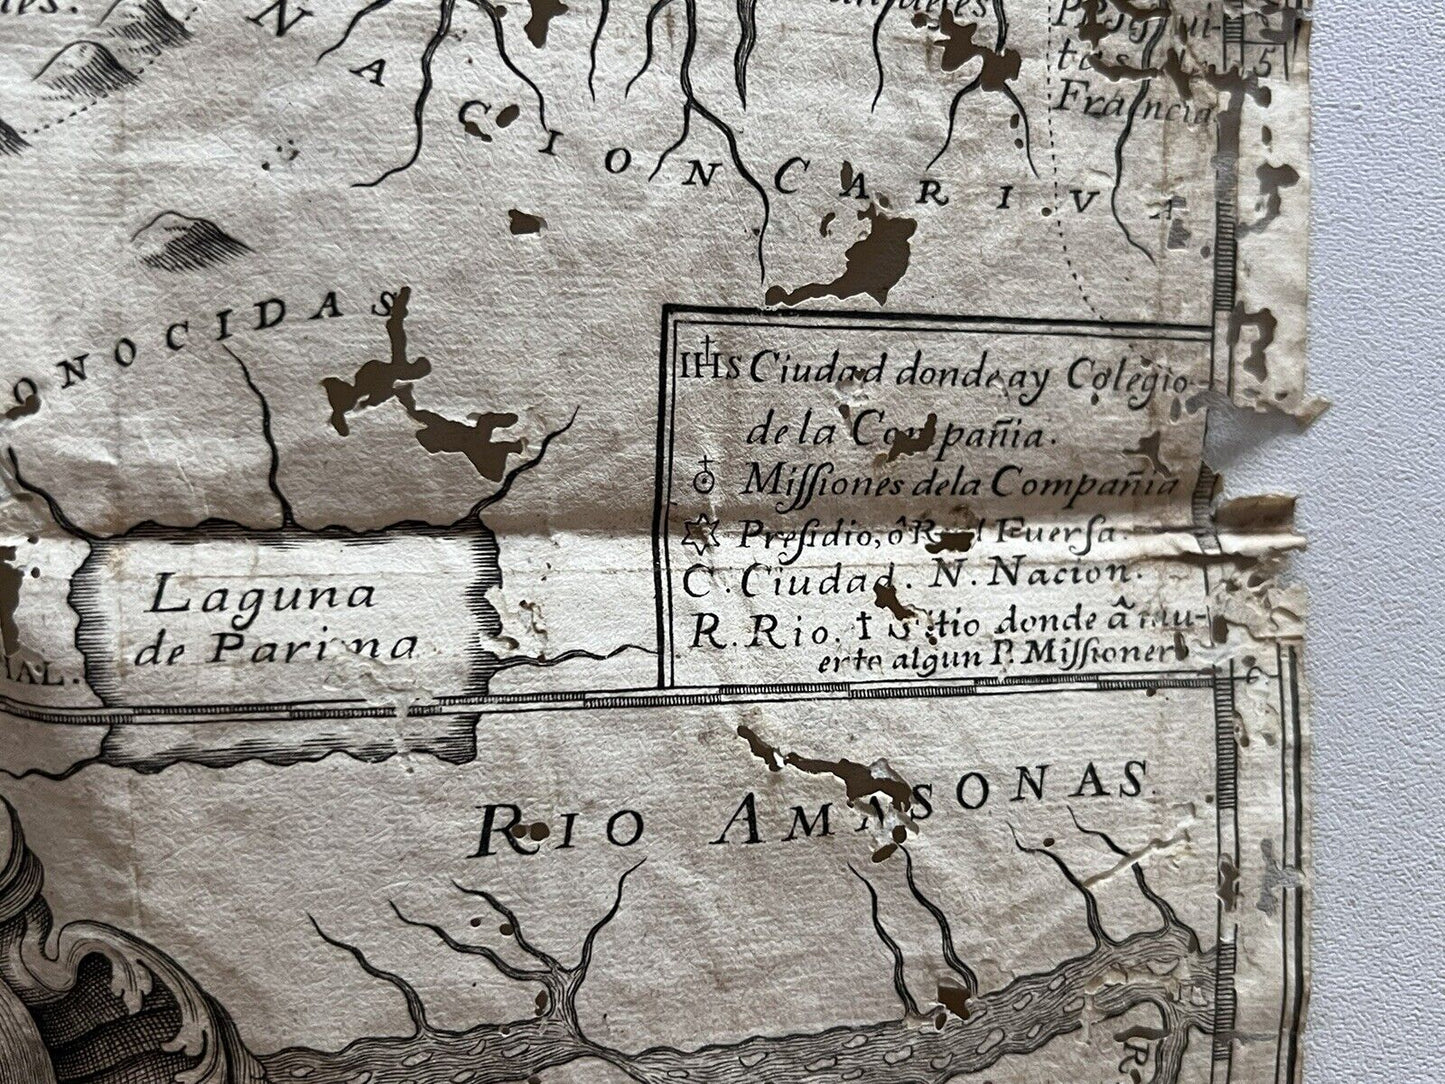 es.
de Francia
5
NACION CARIVA
ONOCIDAS
IHS Ciudad donde ay Colegio
de la Compañia.
Miſſiones dela Compañia
Preſidio, ô Real Fuerſa.
C. Ciudad. N. Nacion.
R. Rio. † Sitio donde â mu-
erto algun P. Miſſionero
Laguna
de Parima
IAL.
6
RIO AMASONAS.
R